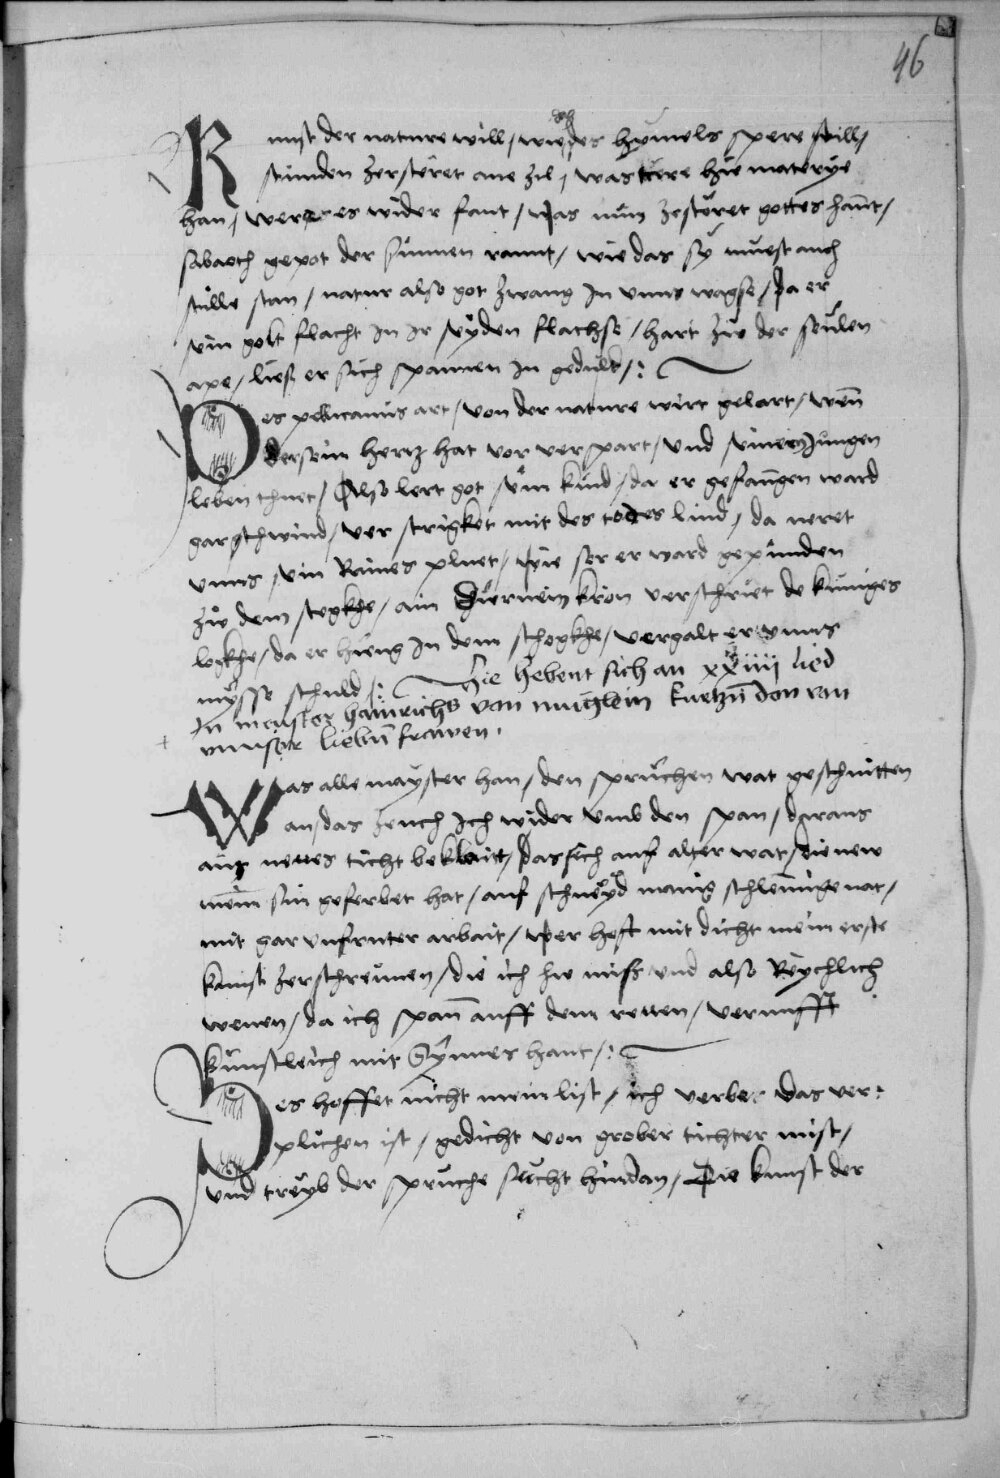 46
Kunst der nature will / wie des hymels spere still /
stunden zerstöret ane zil / was were hie materye
han / were es wider fant / Was nun zestöret gottes hant /
sabaoth gepot der sunnen rannt / wie das sy muest auch
stille stan / natur also got zwang In vnns wagse / Da er
sein golt flacht In ir seyden flachse / hart zw der seulen
axe / ließ er sich spannen In geduld /:
Des pellicanus art / von der nature wirt gelart / wenn
der sein hertz hat vor verspart / vnd seinen Jungen
leben thuet / Also lert got sein kind / da er gefanngen ward
gar schwind / ver strigket mit des todes lind / da neret
vnns sein Raines pluet / Wie ser er ward gepunden
zw dem stogkhe / ain Duernein kron verschriet de kuniges
logkhe / da er hieng In dem schogkhe / vergalt er vnns
mysse schuld /: Hie hebent sich an xxiiii lied
In maister hainrichs von muglein kurtzn don von
vnnser liebn frawen .
Was alle mayster han / den spruchen wat geschnitten
an / das zeuch Ich wider vmb den span / daraus
ain newes ticht beklait / Das sich auf alter wat / die new
mein sin geferbet hat / auf schneyd manig schlennige nat /
mit gar vnfruter arbait / Wer heft mit dicht mein erste
kunst zerschreimen / die ich hie miss vnd also Reychlich
wenen / da ich spann auff dem retten / vernufft
kunstleich mit Synnes hant /:
Des hoffet nicht mein list / ich verber das ver:
plichen ist / gedicht von grober tichter mist /
vnd treyb der spruche sucht hindan / Die kunst der